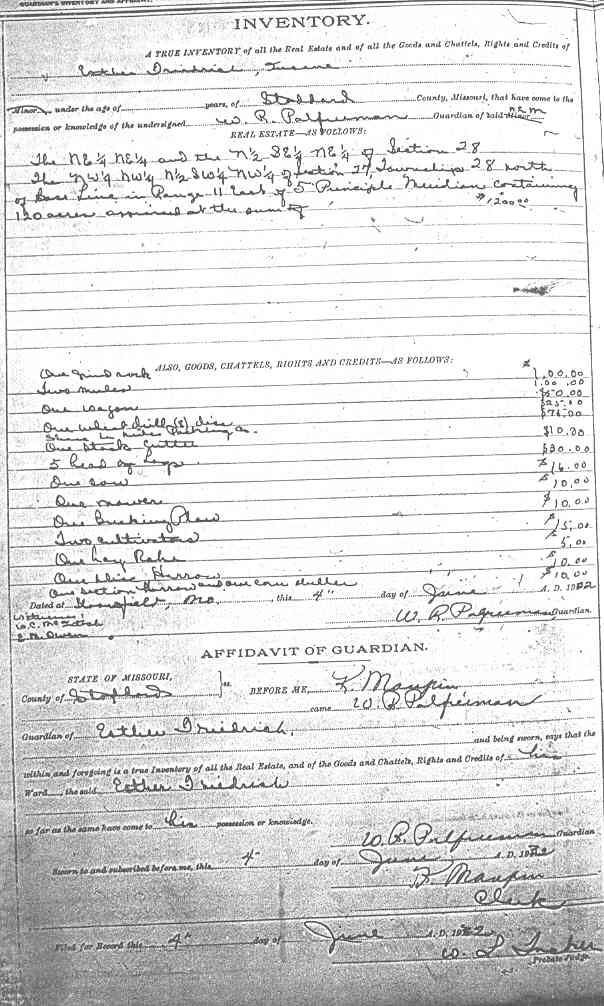 GUARDIAN'S INVENTORY AND AFFIDAVIT.
INVENTORY.
A TRUE INVENTORY of all the Real Estate and of all the Goods and Chattels, Rights and Credits of
Esther Friedrich, Insane
Minor, under the age of years, of Stoddard County, Missouri, that have come to the
possession or knowledge of the undersigned W. R. Palfreeman Guardian of said Minor
REAL ESTATE—AS FOLLOWS:
The NE¼ NE¼ and the N½ SE¼ NE¼ of Section 28
The NW¼ NW¼ N½ SW¼ NW¼ of Section 27, Township 28 north
of Base Line in Range 11 East of 5 Principle Meridian containing
120 acres at the sum of $1200.00
ALSO, GOODS, CHATTELS, RIGHTS AND CREDITS—AS FOLLOWS: $
One grind rock 1.00.00
Two mules 1.00.00
One wagon $50.00
$25.00
One wheat drill (8) disc $75.00
One Stock Cutter $10.00
5 head of hogs $30.00
One sow $16.00
One mower $10.00
One Breaking Plow $10.00
Two cultivators $15.00
One Hay Rake 5.00
One Disc Harrow $10.00
One section Harrow and one corn sheller $10.00
Dated at Mo, this 4" day of June A. D. 1922
W. R. Palfreeman Guardian.
E. M. Owen
AFFIDAVIT OF GUARDIAN.
STATE OF MISSOURI,
County of Stoddard ss. BEFORE ME, K. Maupin
came W. R. Palfreeman
Guardian of Esther Friedrich, and being sworn, says that the
within and foregoing is a true Inventory of all the Real Estate, and of the Goods and Chattels, Rights and Credits of his
Ward, the said Esther Friedrich
so far as the same have come to his possession or knowledge.
W. R. Palfreeman Guardian
Sworn to and subscribed before me, this 4" day of June A. D. 1922
K. Maupin
Clerk
Filed for Record this 4" day of June A. D. 1922
W. L. Tucker
Probate Judge.